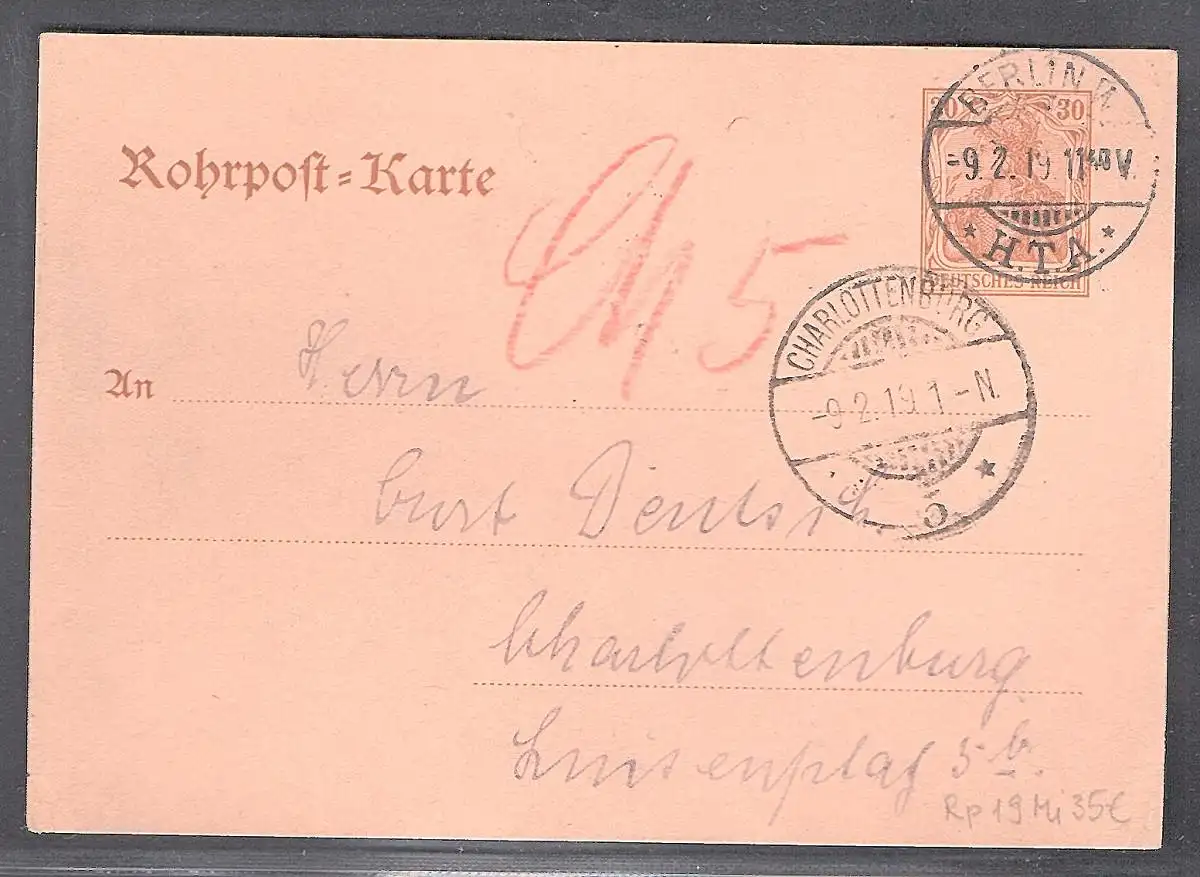 Rohrpost-Karte
30 30
DEUTSCHES REICH
BERLIN W.
-9.2.19. 11⁴⁰V.
* H.T.A. *
CHARLOTTENBURG
-9.2.19. 1-N.
5
An Herrn
Curt Deutsch
Charlottenburg
Luisenplatz 5 b.
Rp 19 Mi 35€